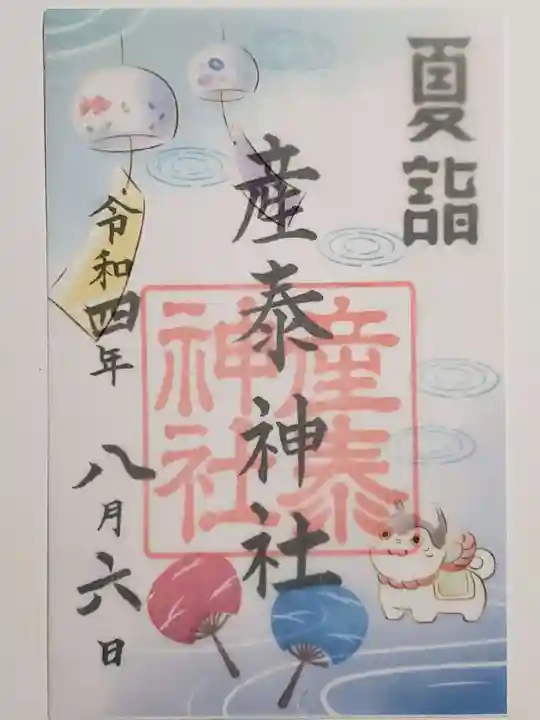 夏詣
産泰神社
産泰
神社
令和四年
八月六日